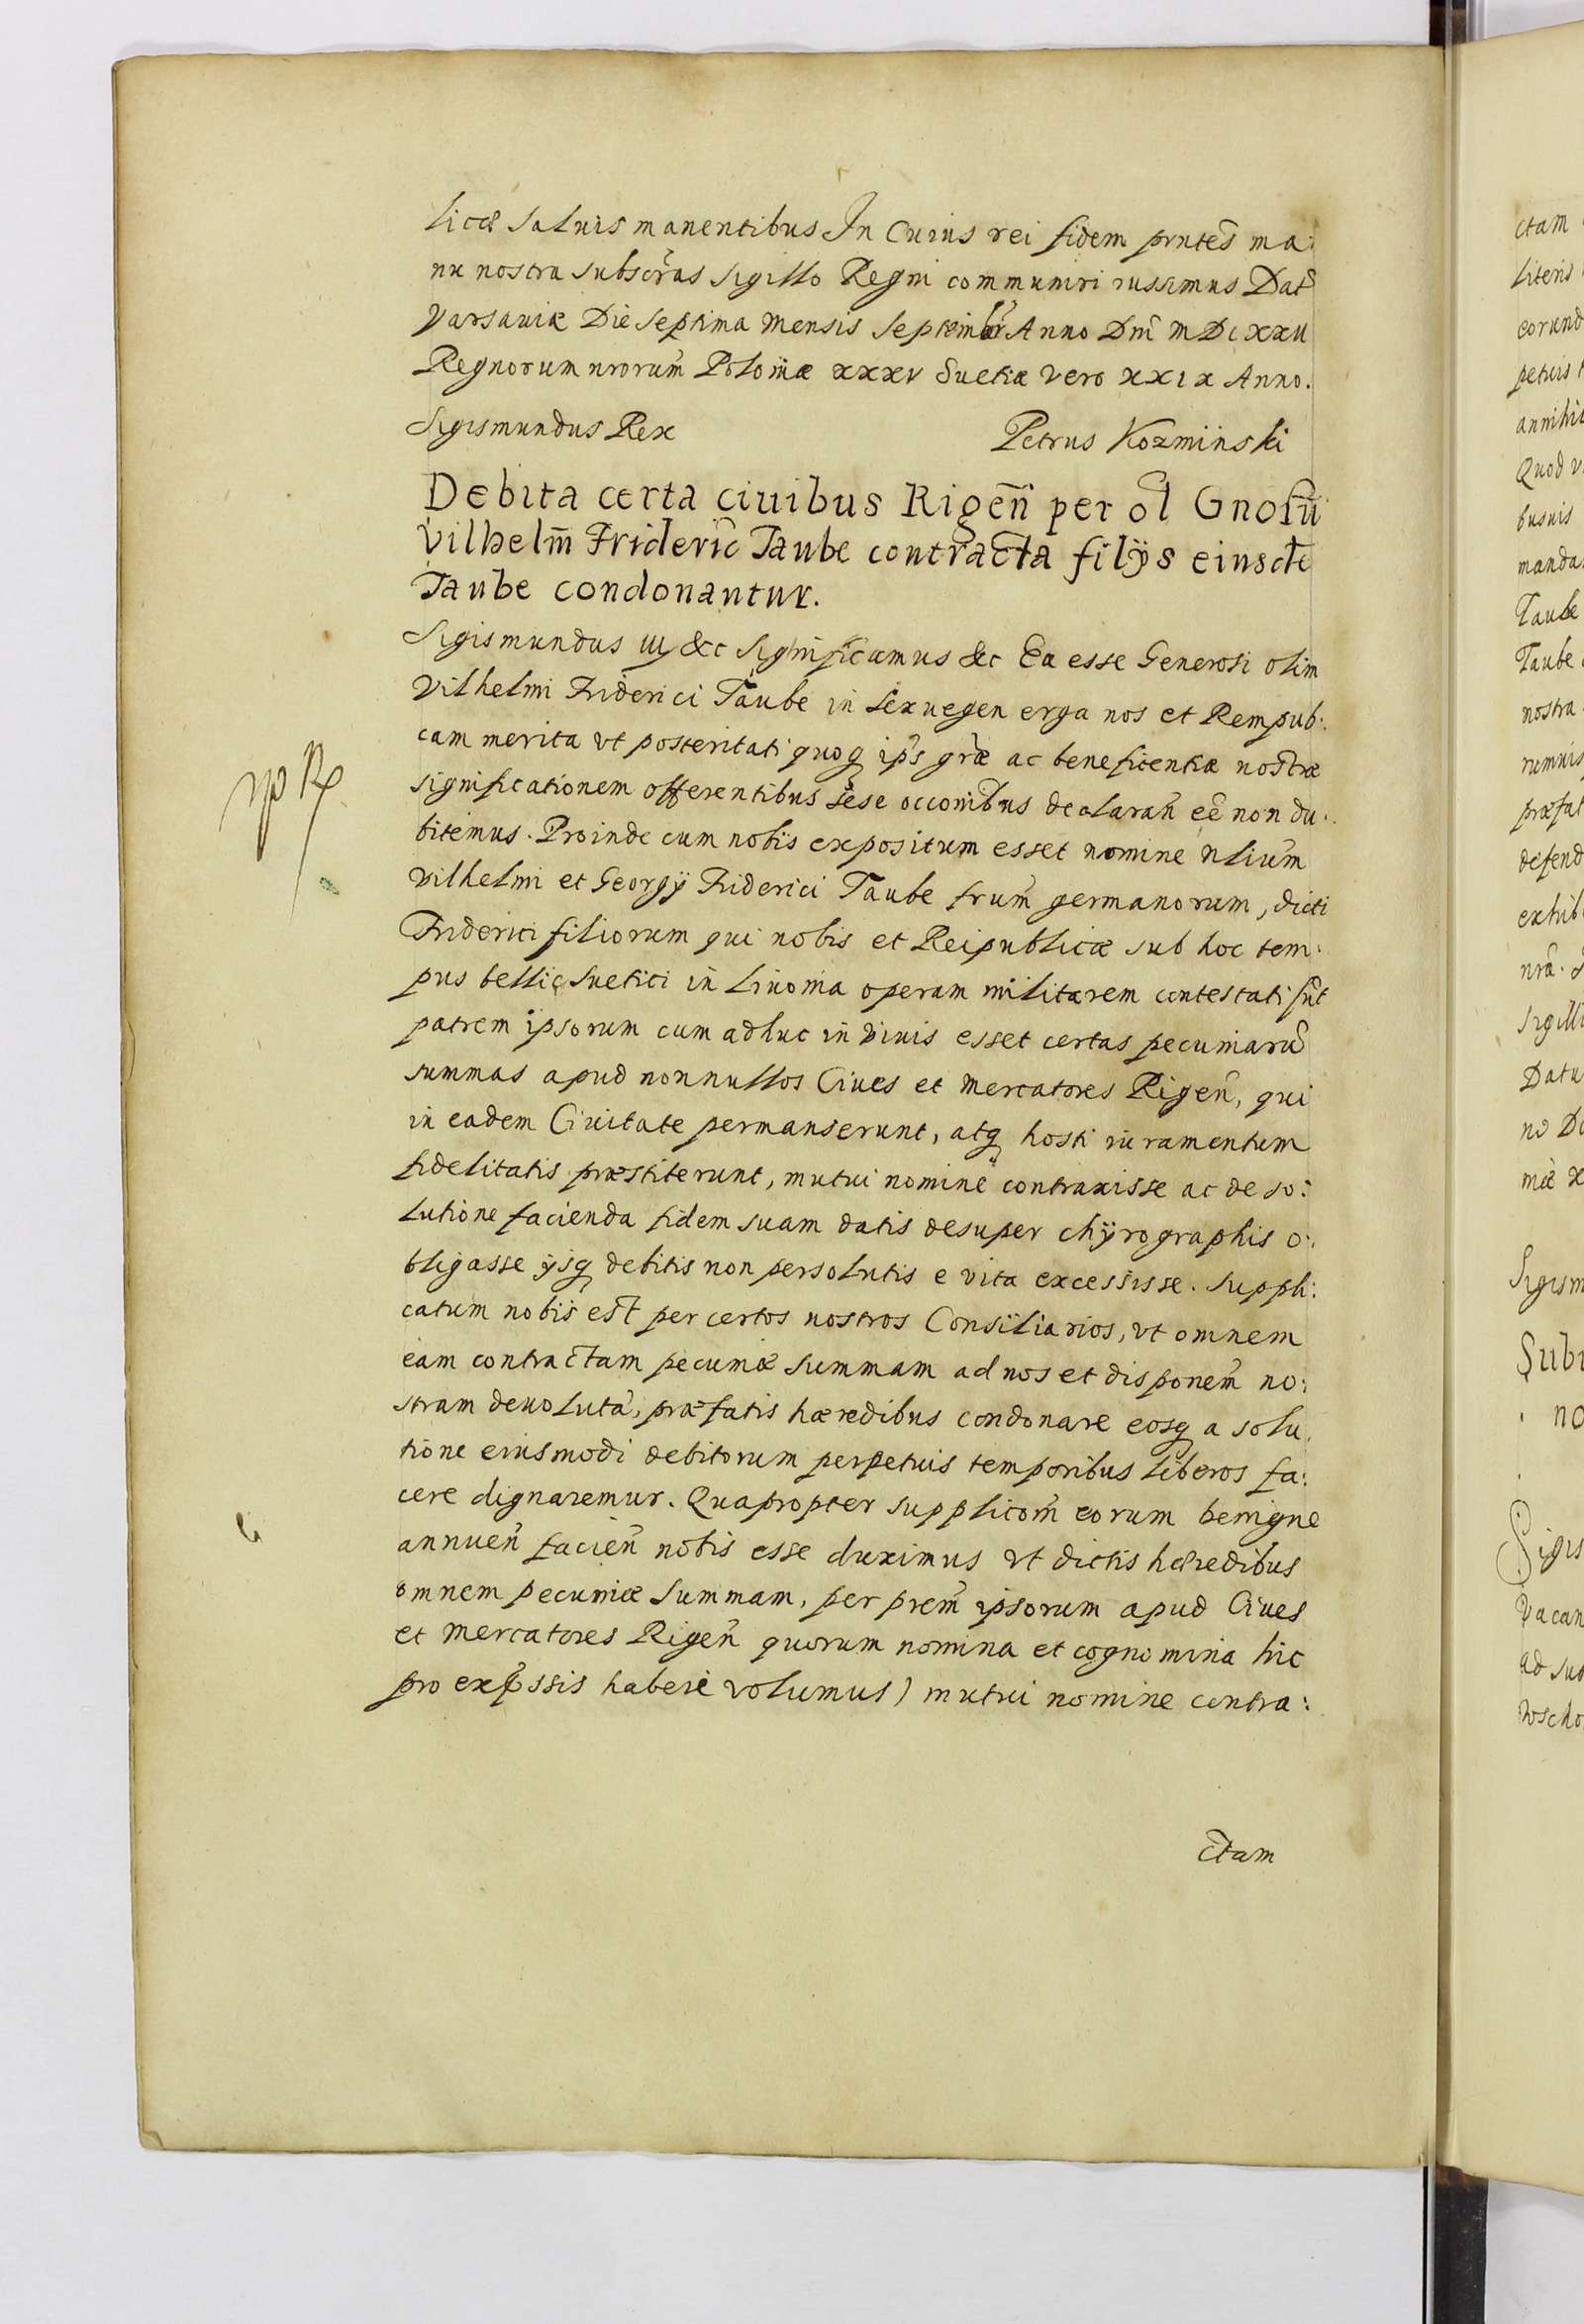 licæ saluis manentibus In Cuius rei fidem pñtes ma:
nu nostra subscr̃as sigillo Regni communiri iussimus Dat̃
Varsauiæ Die septima Mensis septembr̃ Anno Dñi MDCXXII
Regnorum nrorum̃ Poloniæ XXXV Suetiæ vero XXIX Anno.
Sigismundus Rex Petrus Kozminski
Debita certa ciuibus Rigeñ per ol Gnosũ
Vilhelm̃ Frideric̃ Taube contracta filijs eiusdẽ
Taube condonantur.
Sigismundus III &c Significamus &c Ea esse Generosi olim
Vilhelmi Friderici Taube in Sexuegen erga nos et Rempub:
cam merita vt posteritati quoq ip̃s gr̃æ ac beneficentiæ nostræ
significationem offerentibus sese occonibus declarañ eẽ non du:
bitemus. Proinde cum nobis expositum esset nomine Nlium̃
Vilhelmi et Georgij Friderici Taube frum̃ germanorum, dicti
Friderici filiorum qui nobis et Reipublicæ sub hoc tem:
pus belli Suetici in Liuonia operam militarem contestati sũt
patrem ipsorum cum adhuc in viuis esset certas pecuniarũ
summas apud nonnullos Ciues et Mercatores Rigeñ, qui
in eadem Ciuitate permanserunt, atq hosti iuramentum
fidelitatis præstiterunt, mutui nomine contraxisse ac de so:
lutione facienda fidem suam datis desuper chÿrographis o:
bligasse ijsq debitis non persolutis e vita excessisse. suppli:
catum nobis est per certos nostros Consiliarios, vt omnem
eam contractam pecuniæ summam ad nos et disponem̃ no:
stram deuolutã, præfatis hæredibus condonare eosq a solu
tione eiusmodi debitorum perpetuis temporibus liberos fa:
cere dignaremur. Quapropter supplicom̃ eorum benigne
annueñ facieñ nobis esse duximus vt dictis hæredibus
omnem pecuniæ summam, per prem̃ ipsorum apud Ciues
et Mercatores Rigeñ quorum nomina et cognomina hic
pro expssis haberi volumus) mutui nomine contra:
ctam